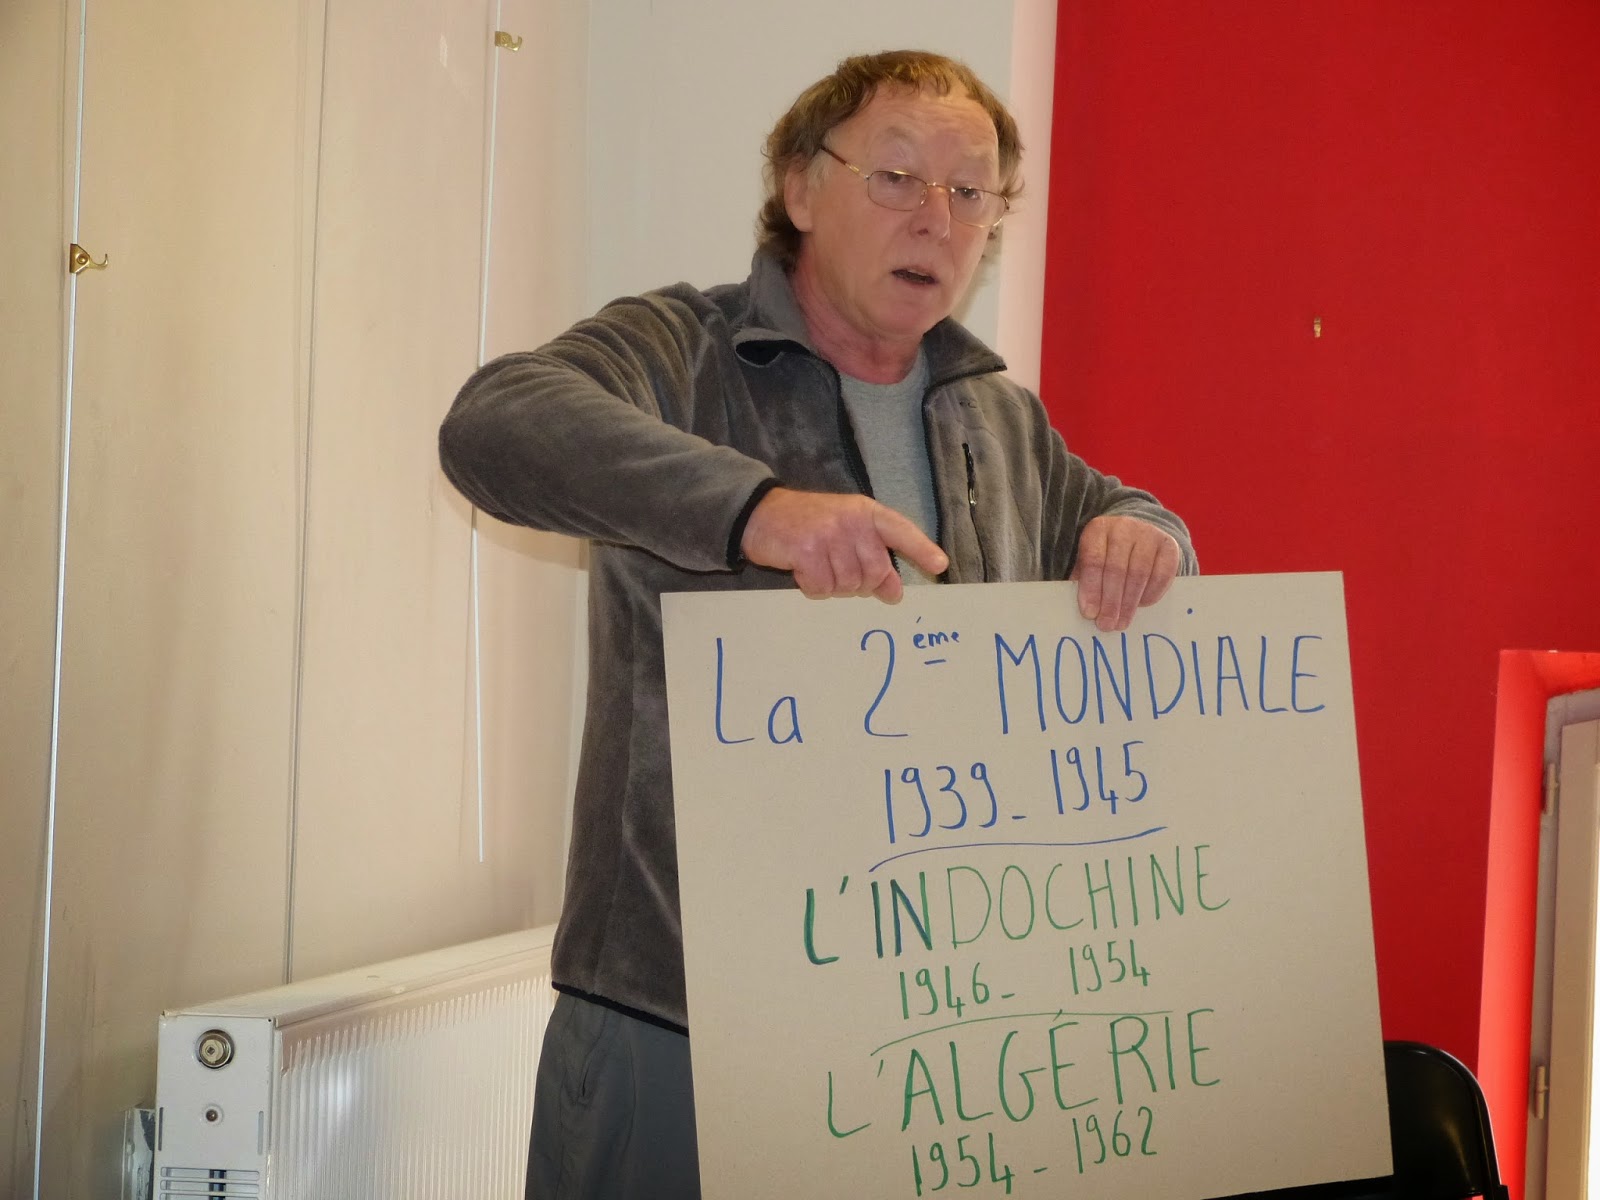 La 2ème MONDIALE
1939-1945
L'INDOCHINE
1946-1954
L'ALGÉRIE
1954-1962